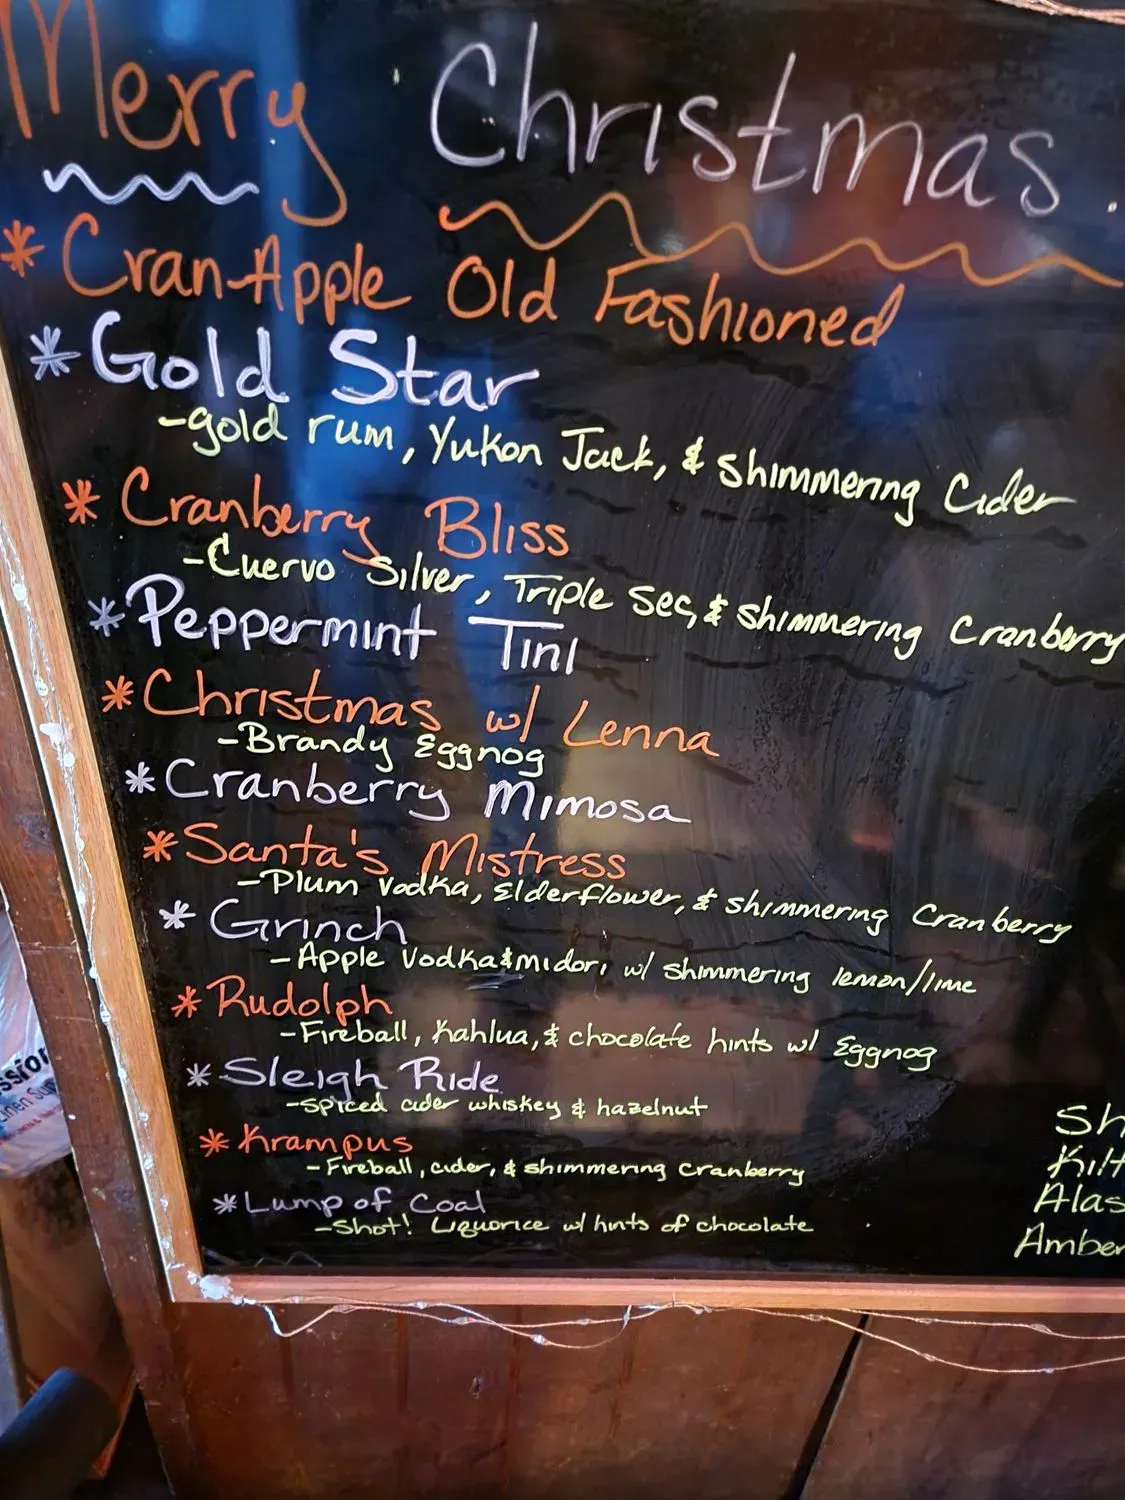 Merry Christmas.
* Cran-Apple Old Fashioned
* Gold Star
-gold rum, Yukon Jack, & shimmering Cider
* Cranberry Bliss
-Cuervo Silver, Triple Sec, & shimmering Cranberry
* Peppermint Tini
* Christmas w/ Lenna
-Brandy Eggnog
* Cranberry Mimosa
* Santa's Mistress
-Plum Vodka, Elderflower, & shimmering Cranberry
* Grinch
-Apple Vodka & midori w/ shimmering lemon/lime
* Rudolph
-Fireball, Kahlua, & chocolate hints w/ Eggnog
* Sleigh Ride
-spiced cider whiskey & hazelnut
* Krampus
-Fireball, cider, & shimmering cranberry
* Lump of Coal
-Shot! Liquorice w/ hints of chocolate
Sh
Kilt
Alas
Amber